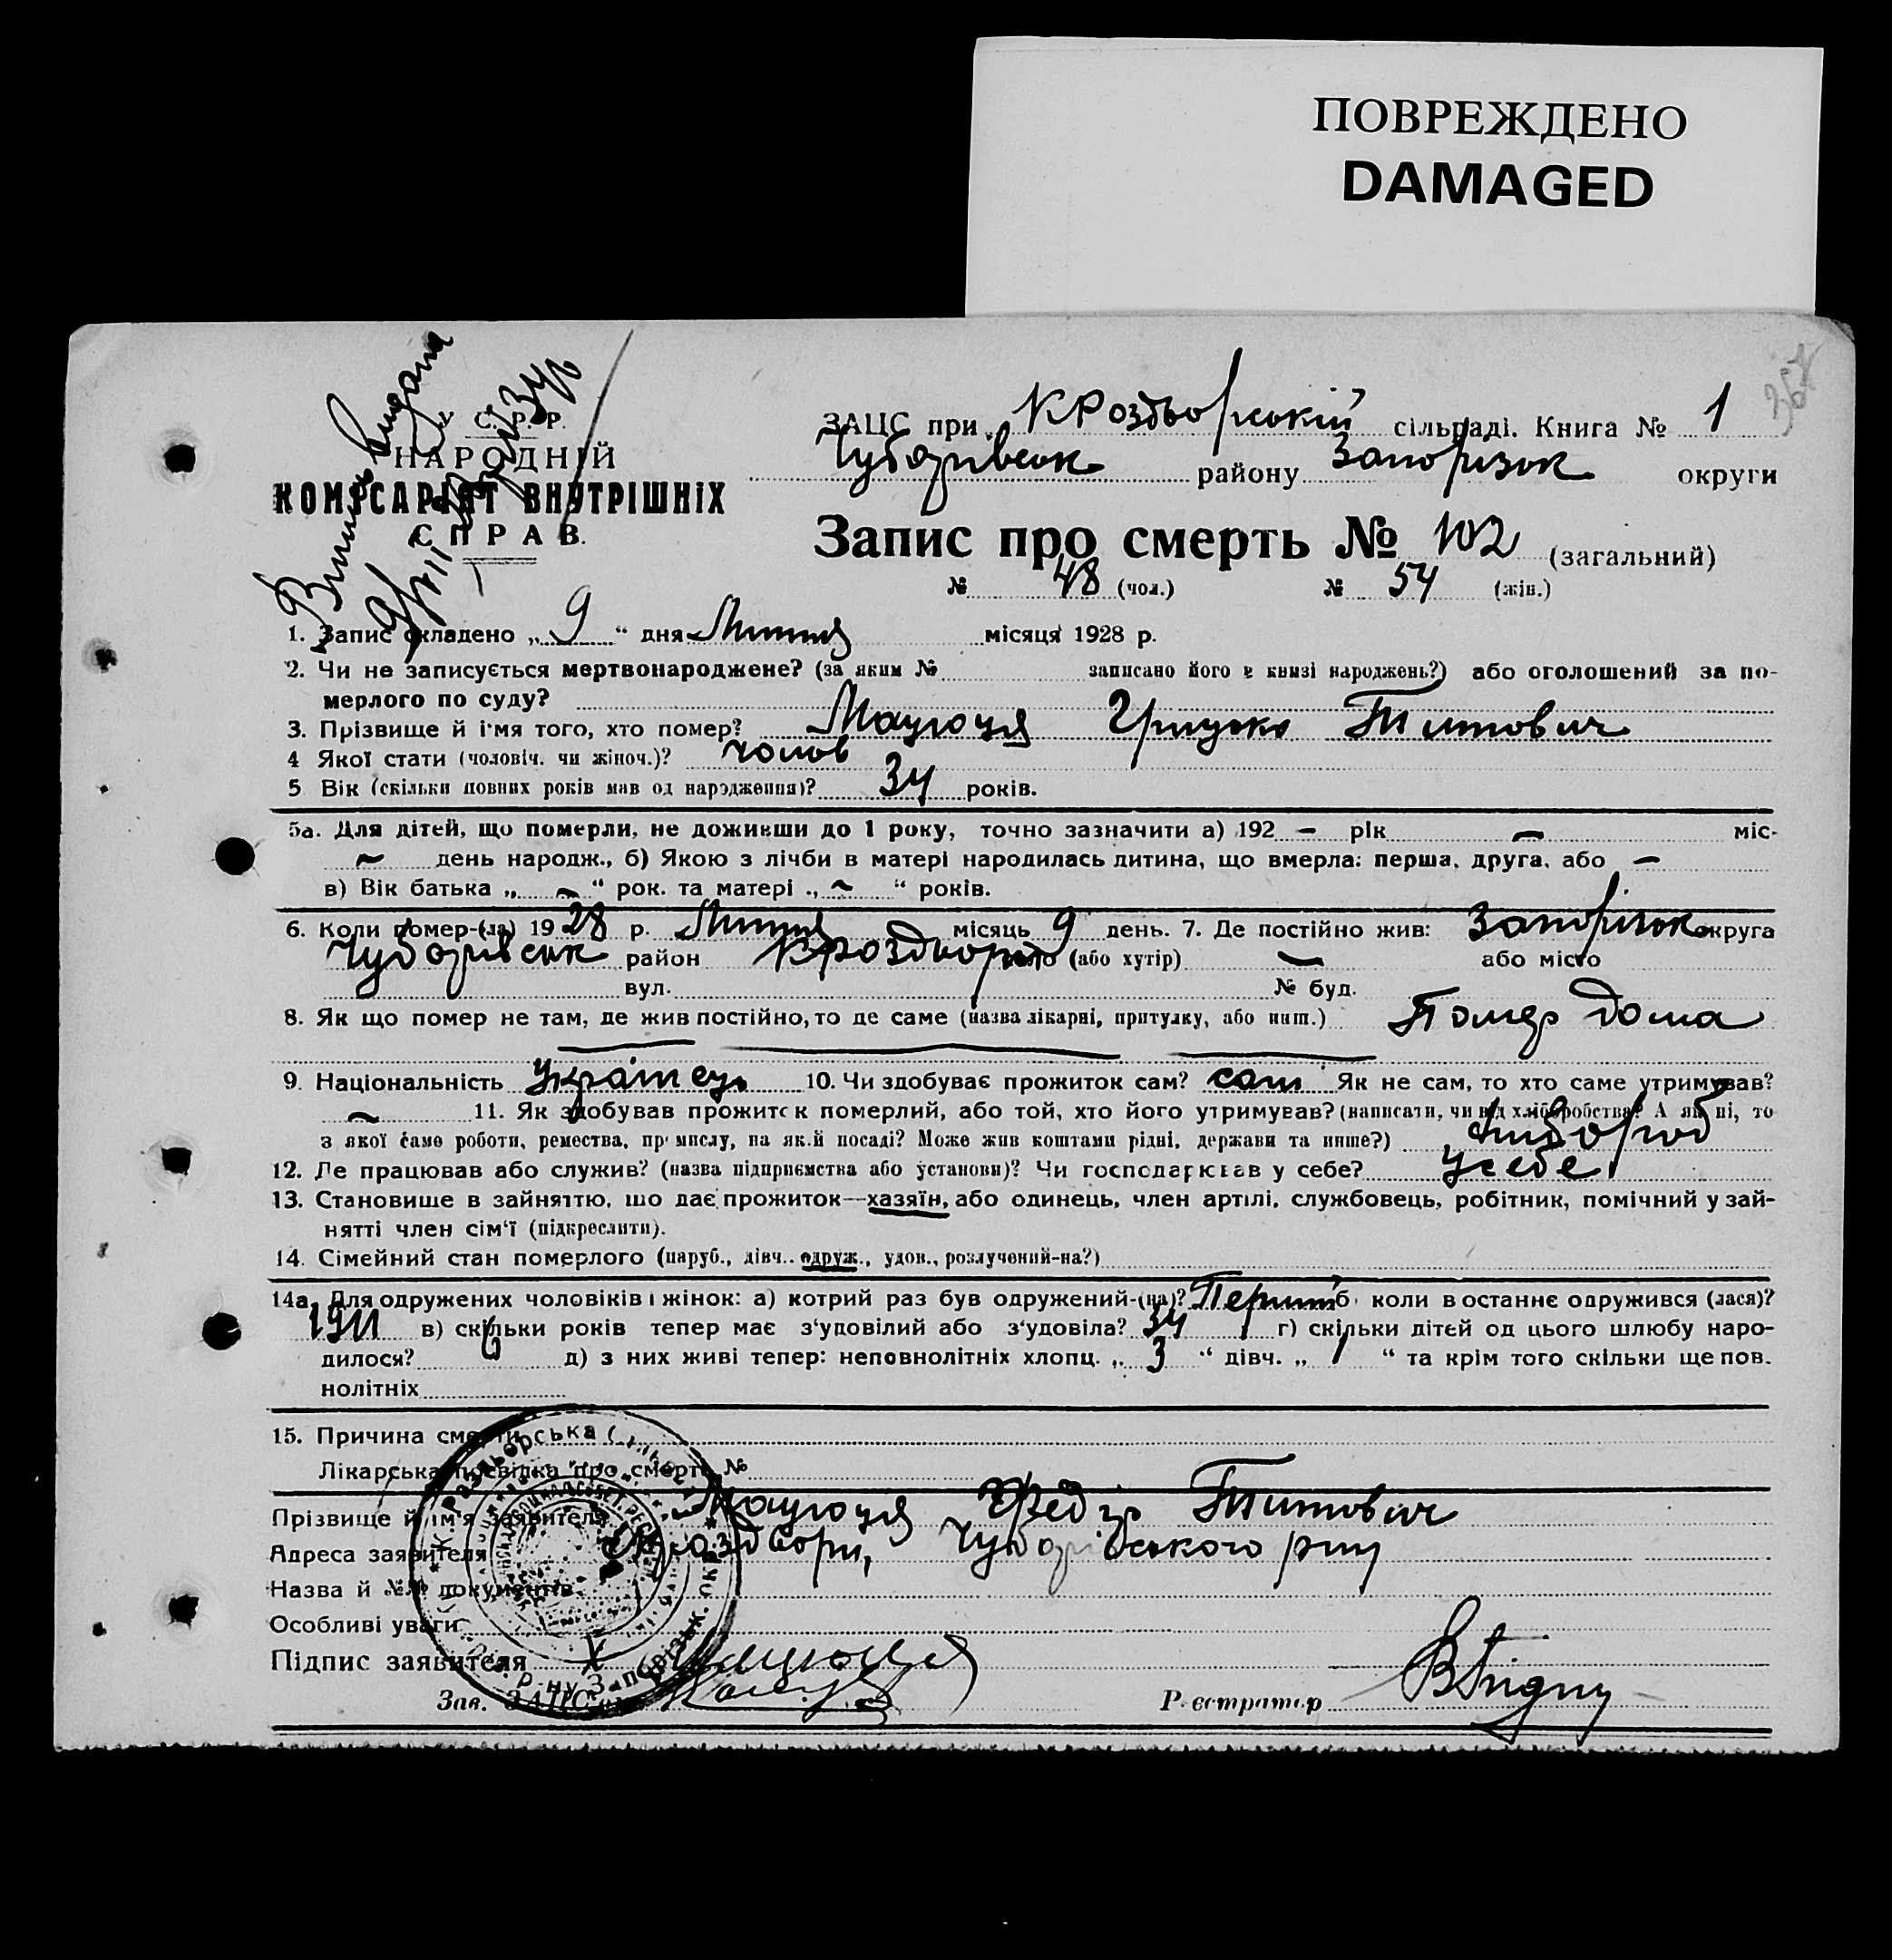 ПОВРЕЖДЕНО
DAMAGED
У. С. Р. Р.
НАРОДНІЙ
КОМІСАРІЯТ ВНУТРІШНІХ
СПРАВ.
ЗАЦС при К Роздворській сільраді. Книга № 1
Чубарівськ району Запорізок округи
Запис про смерть № 102 (загальний)
№ 48 (чол.) № 54 (жін.)
1. Запис складено „ 9 “ дня Липня місяця 1928 р.
2. Чи не записується мертвонароджене? (за яким № записано його в книзі народжень?) або оголошений за по-
мерлого по суду?
3. Прізвище й ім'я того, хто помер? Мацюця Грицько Титович
4 Якої статі (чоловіч. чи жіноч.)? чолов
5 Вік (скільки повних років мав од народження)? 34 років.
5а. Для дітей, що померли, не доживши до 1 року, точно зазначити а) 192 – рік – міс-
~ день народж., б) Якою з лічби в матері народилась дитина, що вмерла: перша, друга, або –
в) Вік батька „ ~ “ рок. та матері „ ~ “ років.
6. Коли помер-(ла) 1928 р. Липня місяць 9 день. 7. Де постійно жив: Запорізок округа
Чубарівськ район К Роздвори село (або хутір) – або місто
вул. № буд.
8. Як що помер не там, де жив постійно, то де саме (назва лікарні, притулку, або инш.) Помер дома
9. Національність Українець 10. Чи здобуває прожиток сам? сам Як не сам, то хто саме утримував?
~ 11. Як здобував прожиток померлий, або той, хто його утримував? (написати, чи від хліборобства? А як ні, то
з якої саме роботи, ремества, промислу, на якій посаді? Може жив коштами рідні, держави та инше?) хлібороб
12. Де працював або служив? (назва підприємства або установи)? Чи господарював у себе? усебе
13. Становище в зайняттю, що дає прожиток—хазяїн, або одинець, член артілі, службовець, робітник, помічний у зай-
нятті член сім'ї (підкреслити).
14. Сімейний стан померлого (паруб., дівч., одруж., удов., розлучений-на?)
14а. Для одружених чоловіків і жінок: а) котрий раз був одружений-(на)? Перший б) коли востаннє одружився (лася)?
1911 в) скільки років тепер має з'удовілий або з'удовіла? 34 г) скільки дітей од цього шлюбу наро-
дилося? 6 д) з них живі тепер: неповнолітніх хлопц. „ 3 “ дівч. „ 1 “ та крім того скільки ще пов.
нолітніх
15. Причина смерти
Лікарська посвідка про смерть №
Прізвище й ім'я заявителя Мацюця Федір Титович
Адреса заявителя К Роздвори, Чубарівського р-ну
Назва й №№ документів
Особливі уваги
Підпис заявителя Х Мацюця
Зав. ЗАЦС'ом
Реєстратор